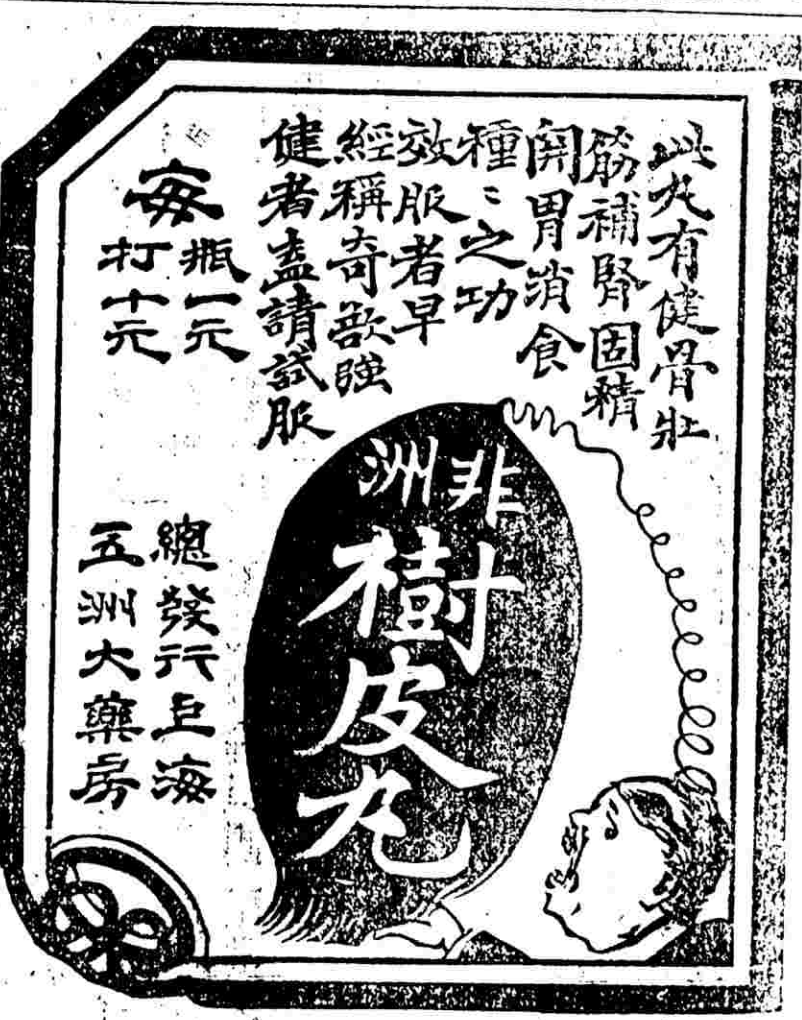 此丸有健骨壯
筋補腎固精
開胃消食
種〻之功
效服者早
經稱奇欲強
健者盍請試服
每
瓶一元
打十元
非洲
樹皮丸
總發行上海
五洲大藥房